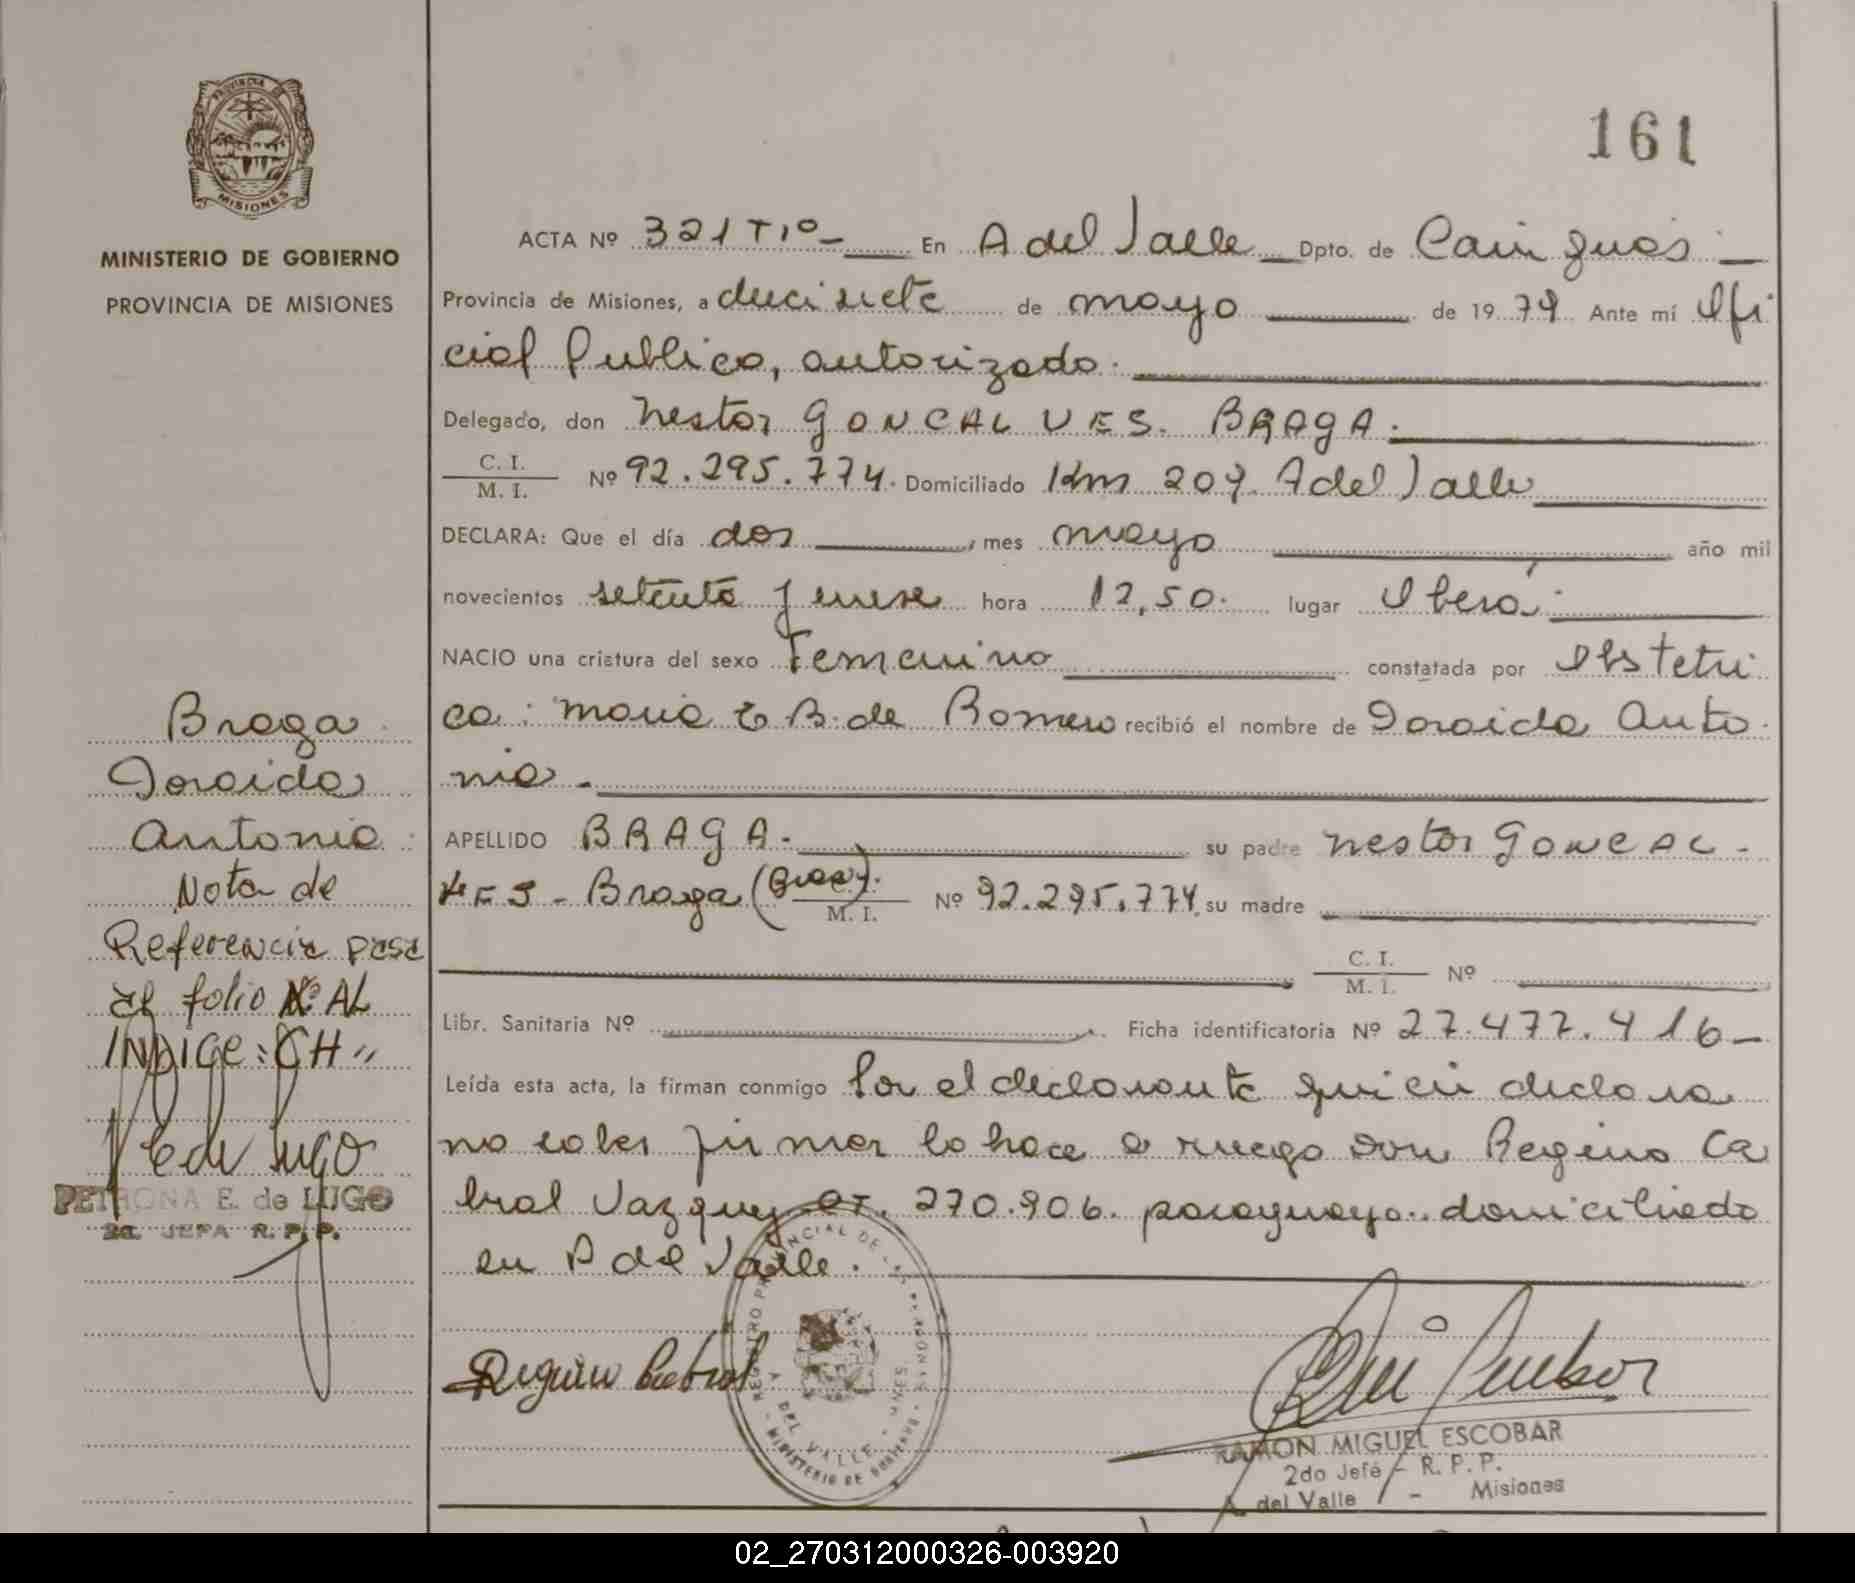 PROVINCIA DE
MISIONES
MINISTERIO DE GOBIERNO
PROVINCIA DE MISIONES
Braga
Doraida
Antonia
Nota de
Referencia pasa
al folio AL
INDICE "CH"
PETRONA E. de LUGO
2a. JEFA R. P. P.
161
ACTA Nº 321 T1º En A del Valle Dpto. de Cainguás
Provincia de Misiones, a diecisiete de mayo de 1979 Ante mí Ofi
cial Publico, autorizado.
Delegado, don Nestor GONCALVES. BRAGA.
C. I.
M. I. Nº 92.295.774. Domiciliado Km 207. A del Valle
DECLARA: Que el día dos, mes mayo año mil
novecientos setenta y nueve hora 12,50. lugar Oberá.
NACIO una criatura del sexo Femenino constatada por Obstetri
ca: Maria E B. de Romero recibió el nombre de Doraida Anto
nia.
APELLIDO BRAGA. su padre Nestor GONCAL-
VES - Braga (Bras). M. I. Nº 92.295.774, su madre
C. I.
M. I. Nº
Libr. Sanitaria Nº Ficha identificatoria Nº 27.477.416
Leída esta acta, la firman conmigo Por el declarante quien declara
no saber firmar lo hace a ruego Don Regino Ca
bral Vazquez 270.906. paraguayo. domiciliado
en A del Valle.
Regino Cabral
REGISTRO PROVINCIAL DE LAS PERSONAS
A. DEL VALLE - MNES.
MINISTERIO DE GOBIERNO
RAMON MIGUEL ESCOBAR
2do Jefe - R. P. P.
A. del Valle - Misiones
02_270312000326-003920